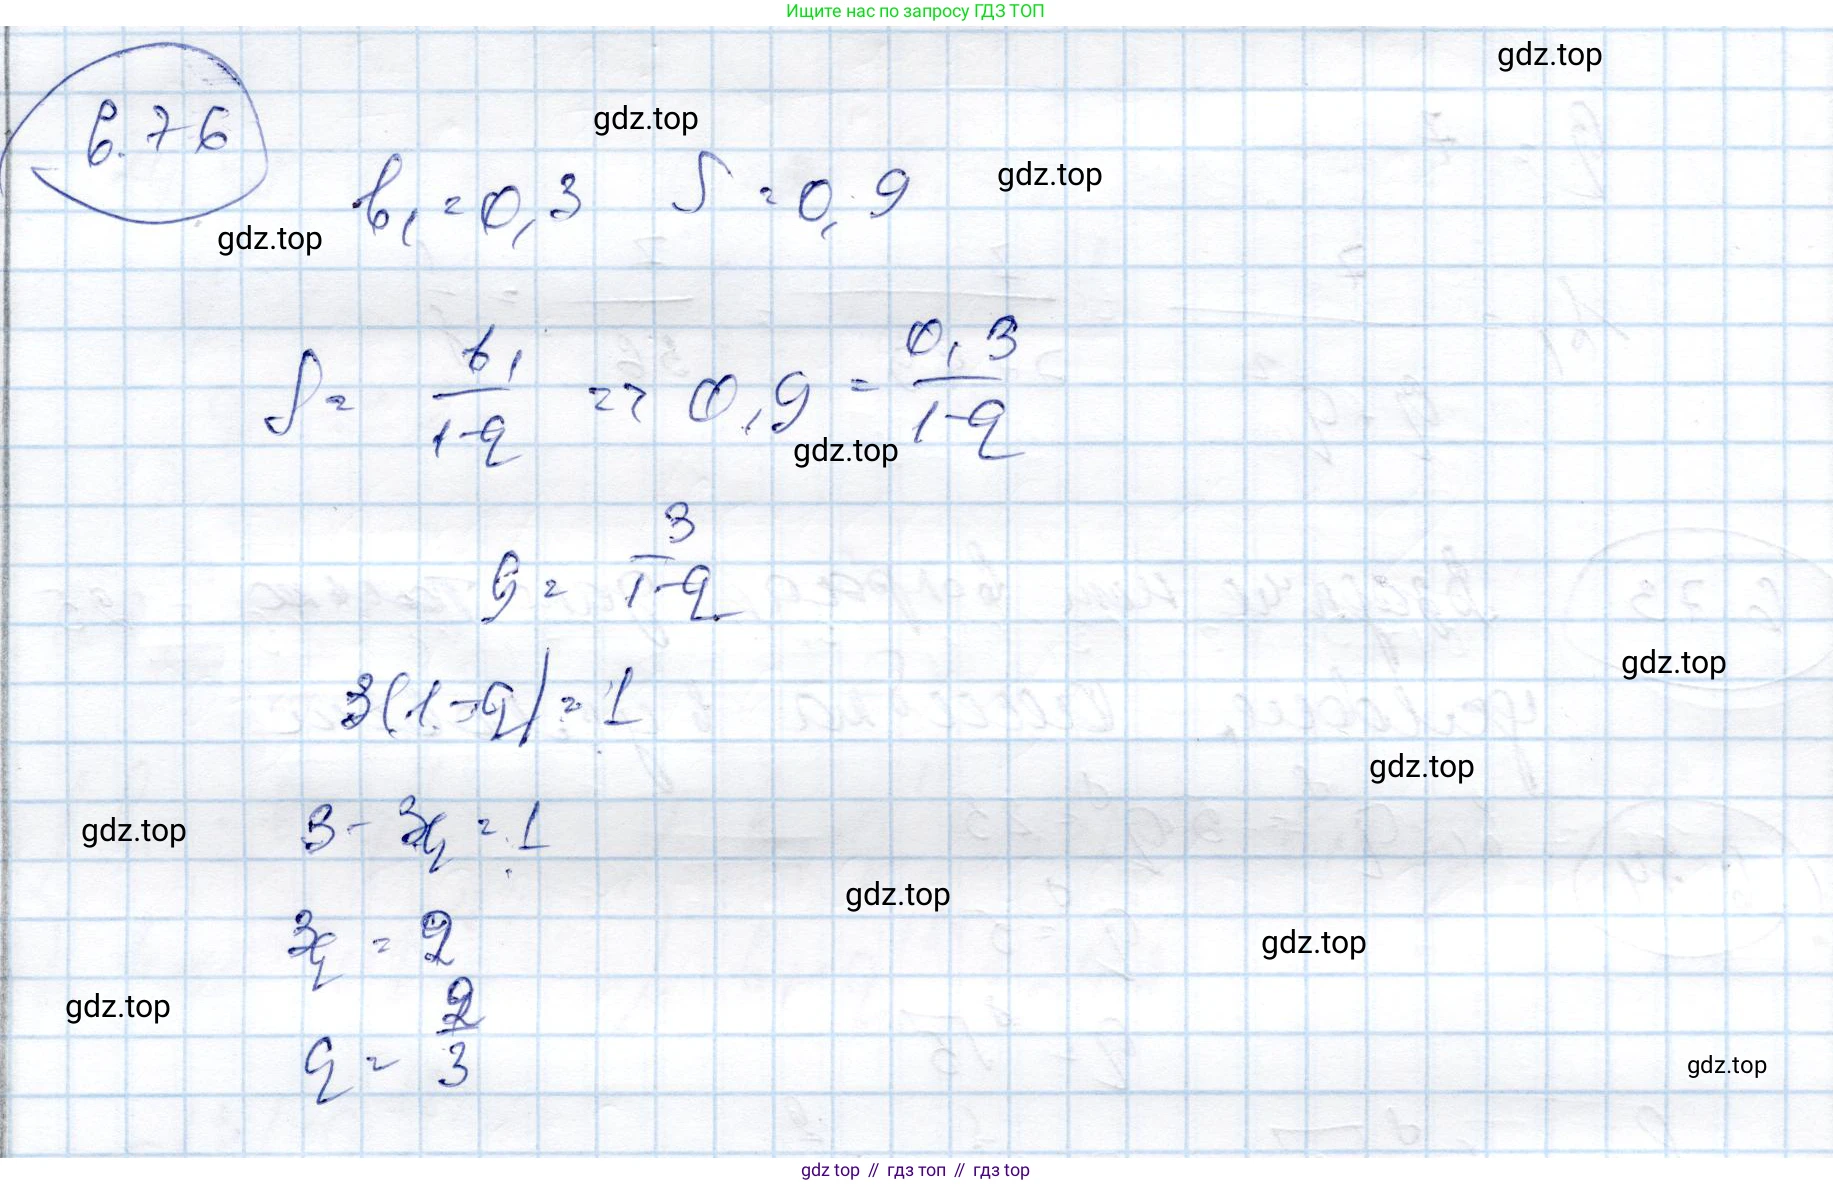 Ищите нас по запросу ГДЗ ТОП
gdz.top
6.76
gdz.top
b₁ = 0,3 S = 0,9
gdz.top
gdz.top
S = b₁/(1-q) => 0,9 = 0,3/(1-q)
gdz.top
9 = 3/(1-q)
3(1-q) = 1
gdz.top
gdz.top
3 - 3q = 1
gdz.top
gdz.top
3q = 2
gdz.top
gdz.top
q = 2/3
gdz.top
gdz top // гдз топ // гдз top